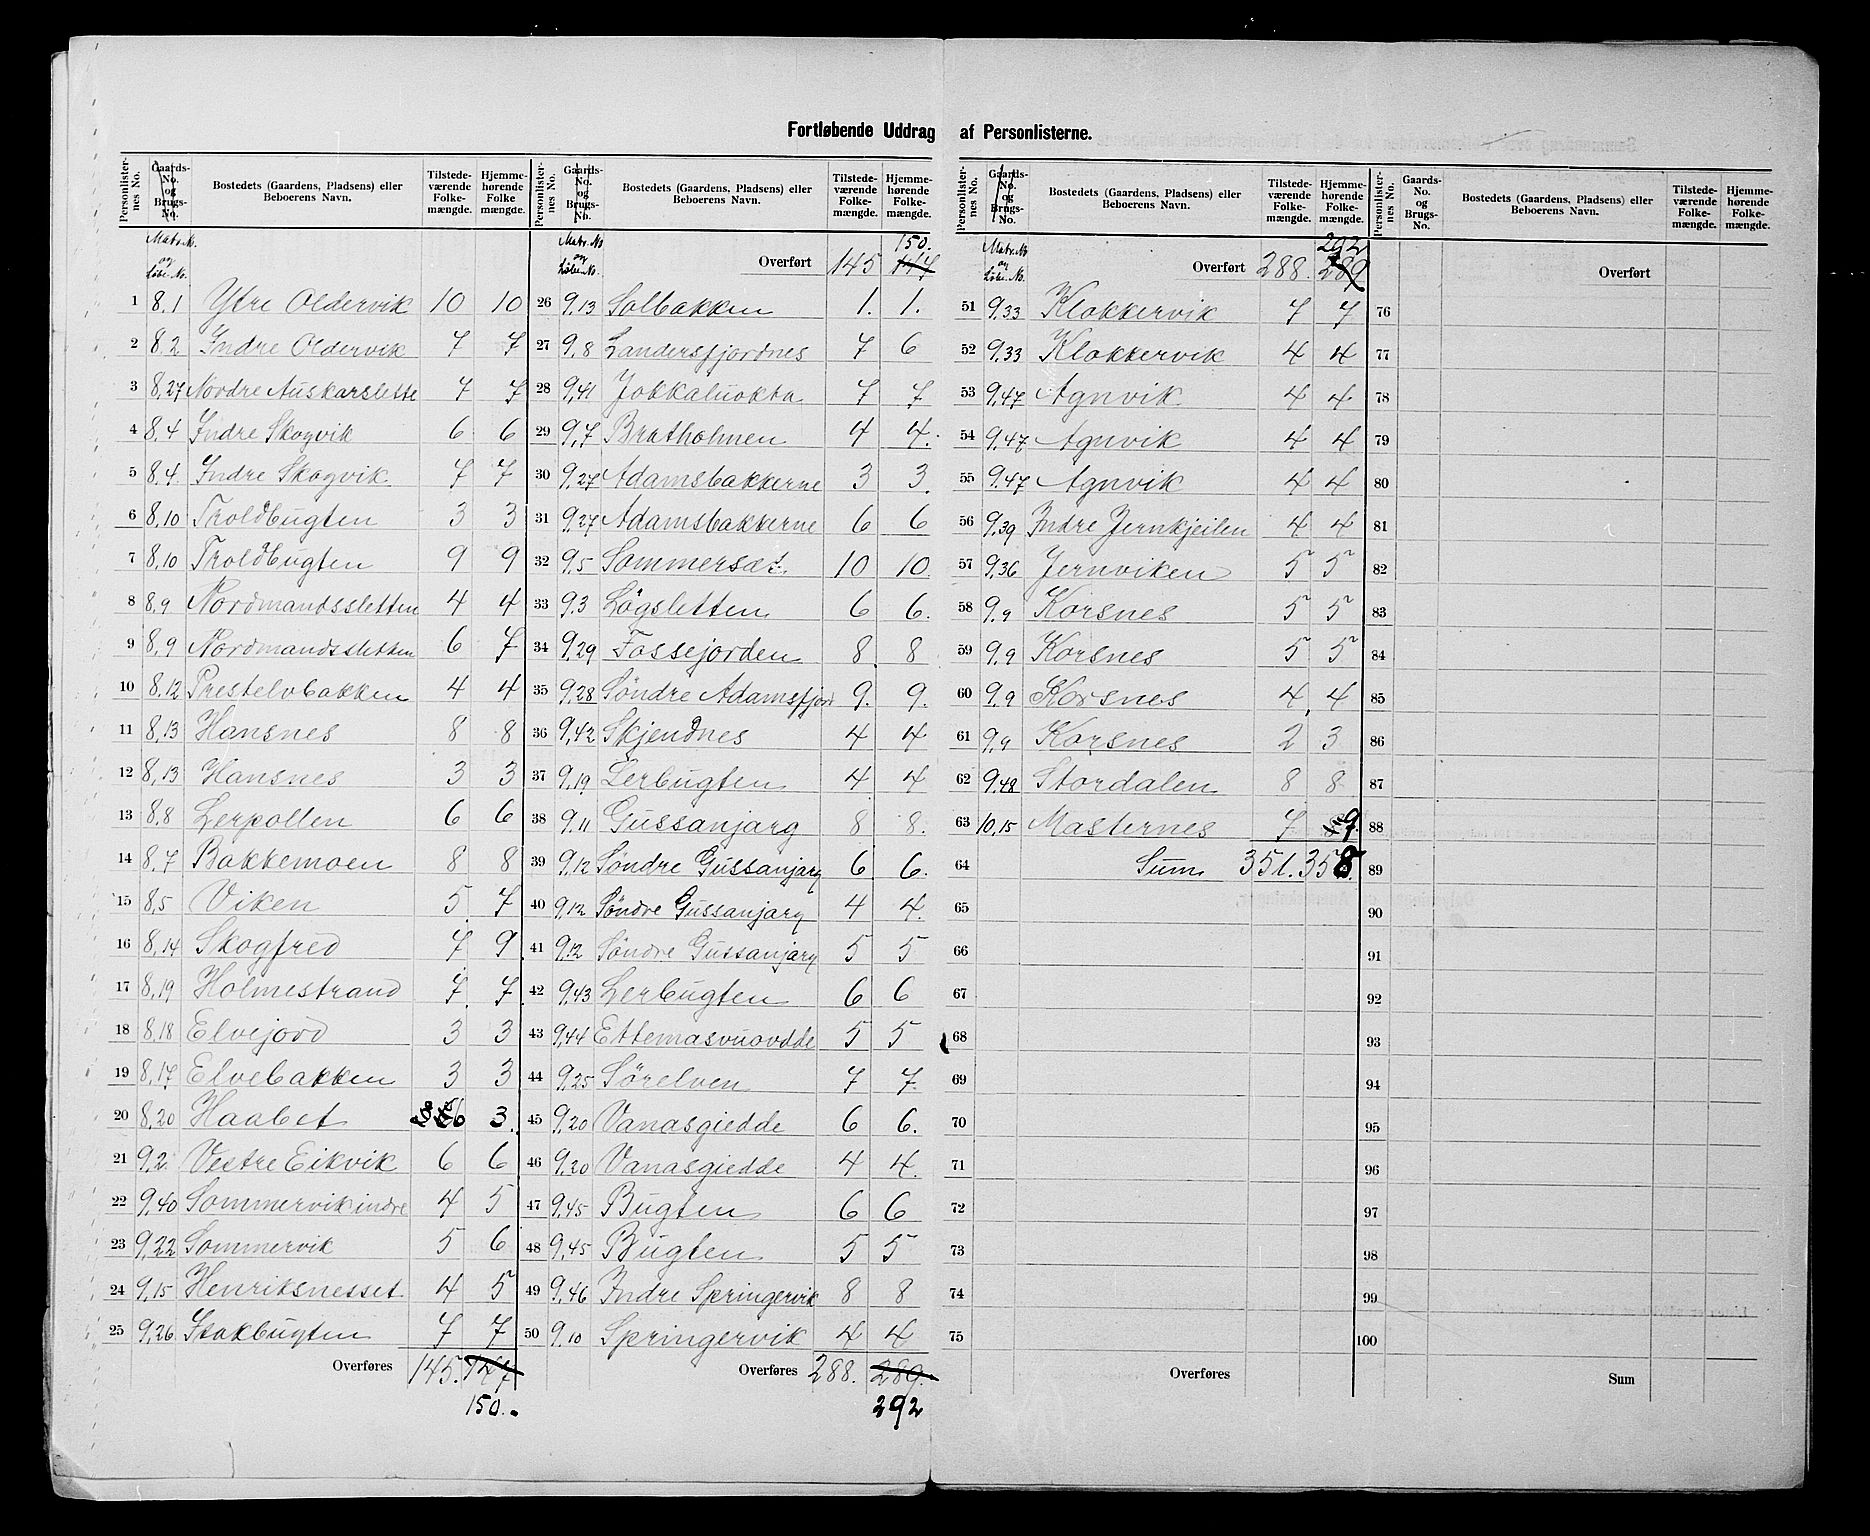 Fortløbende Uddrag af Personlisterne.
Personlister-nes No. Gaards-No. og Brugs-No. Bostedets (Gaardens, Pladsens) eller Beboerens Navn. Tilstede-værende Folke-mængde. Hjemme-hørende Folke mængde.
Matr. No. og Løbe No.
1 8.1 Ytre Oldervik 10 10
2 8.2 Indre Oldervik 7 7
3 8,27 Nordre Auskarslette 7 7
4 8.4 Indre Skogvik 6 6
5 8.4. Indre Skogvik 7 7
6 8,10 Troldbugten 3 3
7 8,10 Troldbugten 9 9
8 8,9 Nordmandssletten 4 4
9 8,9 Nordmandssletten 6 7
10 8.12 Prestelvbakken 4 4
11 8,13 Hansnes 8 8
12 8,13 Hansnes 3 3
13 8,8 Lerpollen 6 6
14 8.7 Bakkemoen 8 8
15 8,5 Viken 5 7
16 8,14 Skogfred 7 9
17 8,19 Holmestrand 7 7
18 8,18 Elvejord 3 3
19 8,17 Elvebakken 3 3
20 8,20 Haabet 6 3.
21 9.2 Vestre Eikvik 6 6
22 9,40 Sommervik indre 4 5
23 9,22 Sommervik 5 6
24 9,15 Henriksnesset 4 5
25 9,26 Stokbugten 7 7
Overføres 145. 147
150.
Personlister-nes No. Gaards-No. og Brugs-No. Bostedets (Gaardens, Pladsens) eller Beboerens Navn. Tilstede-værende Folke-mængde. Hjemme-hørende Folke-mængde.
Matr. No og Løbe No. 150.
Overført 145 147
26 9,13 Solbakken 1. 1.
27 9,8 Landersfjordnes 7 6
28 9,41 Jokkaluokta 7 7
29 9,7 Bratholmen 4 4.
30 9.27 Adamsbakkerne 3 3.
31 9.27 Adamsbakkerne 6 6
32 9.5 Sommersæt 10 10.
33 9.3 Løgsletten 6 6.
34 9.29 Fossejorden 8. 8
35 9.28 Søndre Adamsfjord 9. 9.
36 9,42 Skjendnes 4 4
37 9,19 Lerbugten 4 4
38 9.11 Gussanjarg 8 8.
39 9.12 Søndre Gussanjarg 6 6.
40 9,12 Søndre Gussanjarg 4 4.
41 9.12 Søndre Gussanjarg 5 5
42 9.43 Lerbugten 6 6
43 9,44 Ettemasvuovdde 5 5
44 9,25 Sørelven 7 7.
45 9,20 Vanasgiedde 6 6.
46 9,20 Vanasgiedde 4 4.
47 9,45 Bugten 6 6
48 9,45 Bugten 5 5
49 9,46 Indre Springervik 8 8
50 9,10 Springervik 4 4
Overføres 288. 289.
292
Personlister-nes No. Gaards-No. og Brugs-No. Bostedets (Gaardens, Pladsens) eller Beboerens Navn. Tilstede-værende Folke-mængde. Hjemme-hørende Folke-mængde.
Matr. No og Løbe No. 292
Overført 288. 289
51 9.33 Klokkervik 7 7
52 9.33 Klokkervik 4 4
53 9.47 Agnvik 4 4
54 9.47 Agnvik 4 4
55 9.47 Agnvik 4 4
56 9.39 Indre Jernkjeilen 4 4
57 9.36 Jernviken 5 5
58 9.9 Korsnes 5 5
59 9.9 Korsnes 5 5
60 9.9 Korsnes 4. 4
61 9.9 Korsnes 2 3
62 9.48 Stordalen 8 8
63 10,15 Masternes 7 9.
64 Sum 351. 358.
65
66
67
68
69
70
71
72
73
74
75
Overføres
Personlister-nes No. Gaards-No. og Brugs-No. Bostedets (Gaardens, Pladsens) eller Beboerens Navn. Tilstede-værende Folke-mængde. Hjemme-hørende Folke-mængde.
Overført
76
77
78
79
80
81
82
83
84
85
86
87
88
89
90
91
92
93
94
95
96
97
98
99
100
Sum